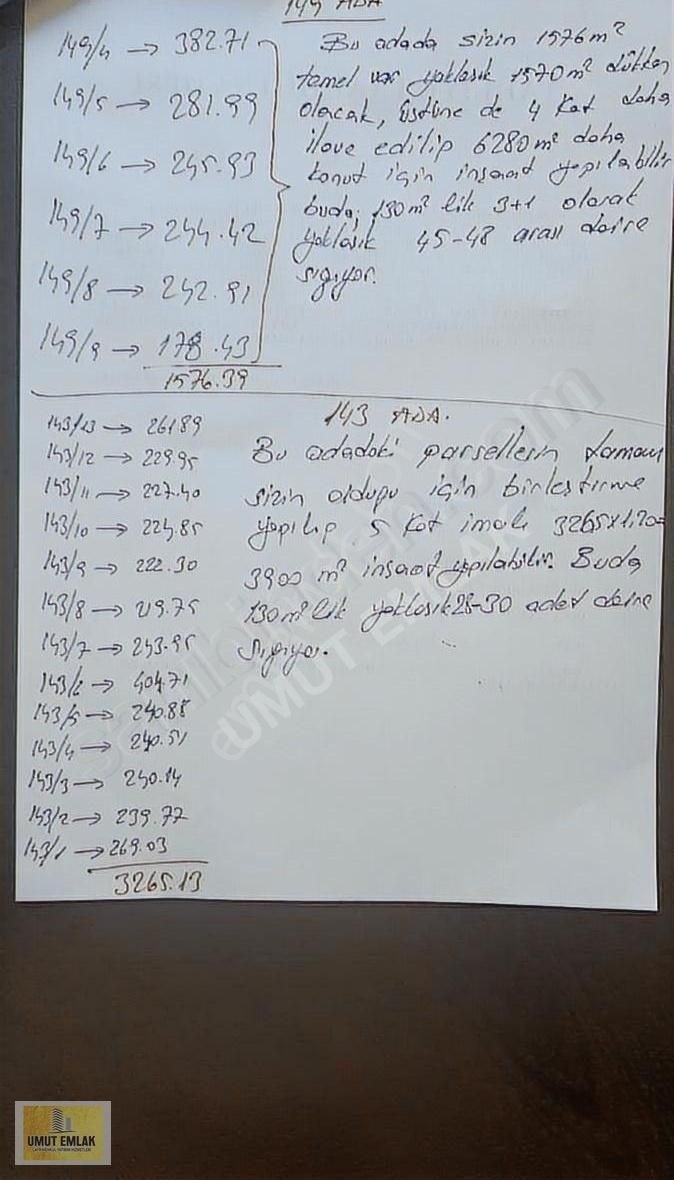 149 ADA
149/4 → 382.71
149/5 → 281.99
149/6 → 245.93
149/7 → 244.42
149/8 → 242.91
149/9 → 178.43
1576.39
Bu adada sizin 1576m²
temel var yaklaşık 1570m² dükkan
olacak, üstüne de 4 kat daha
ilave edilip 6280m² daha
konut için inşaat yapılabilir
buda; 130m² lik 3+1 olarak
yaklaşık 45-48 arası daire
sığıyor.
143/13 → 261.89
143/12 → 229.95
143/11 → 227.40
143/10 → 224.85
143/9 → 222.30
143/8 → 219.75
143/7 → 243.95
143/6 → 404.71
143/5 → 240.88
143/4 → 240.51
143/3 → 240.14
143/2 → 239.77
143/1 → 269.03
3265.13
143 ADA.
Bu adadaki parsellerin tamamı
sizin olduğu için birleştirme
yapılıp 5 kat imarlı 3265x1.20=
3900 m² inşaat yapılabilir. Buda
130m² lik yaklaşık 28-30 adet daire
sığıyor.
sahibinden.com
UMUT EMLAK
UMUT EMLAK